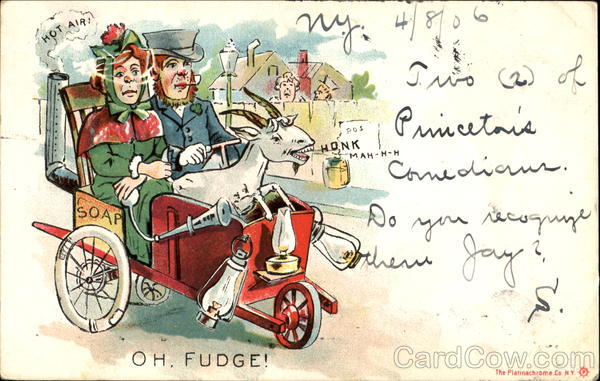 HOT AIR!
Ny. 4/8/06
Two (2) of
Princeton's
Comedians.
Do you recognize
them Jay?
S.
POS
HONK
MAH-H-H
SOAP
OH, FUDGE!
The Platinachrome Co. N.Y.
CardCow.com